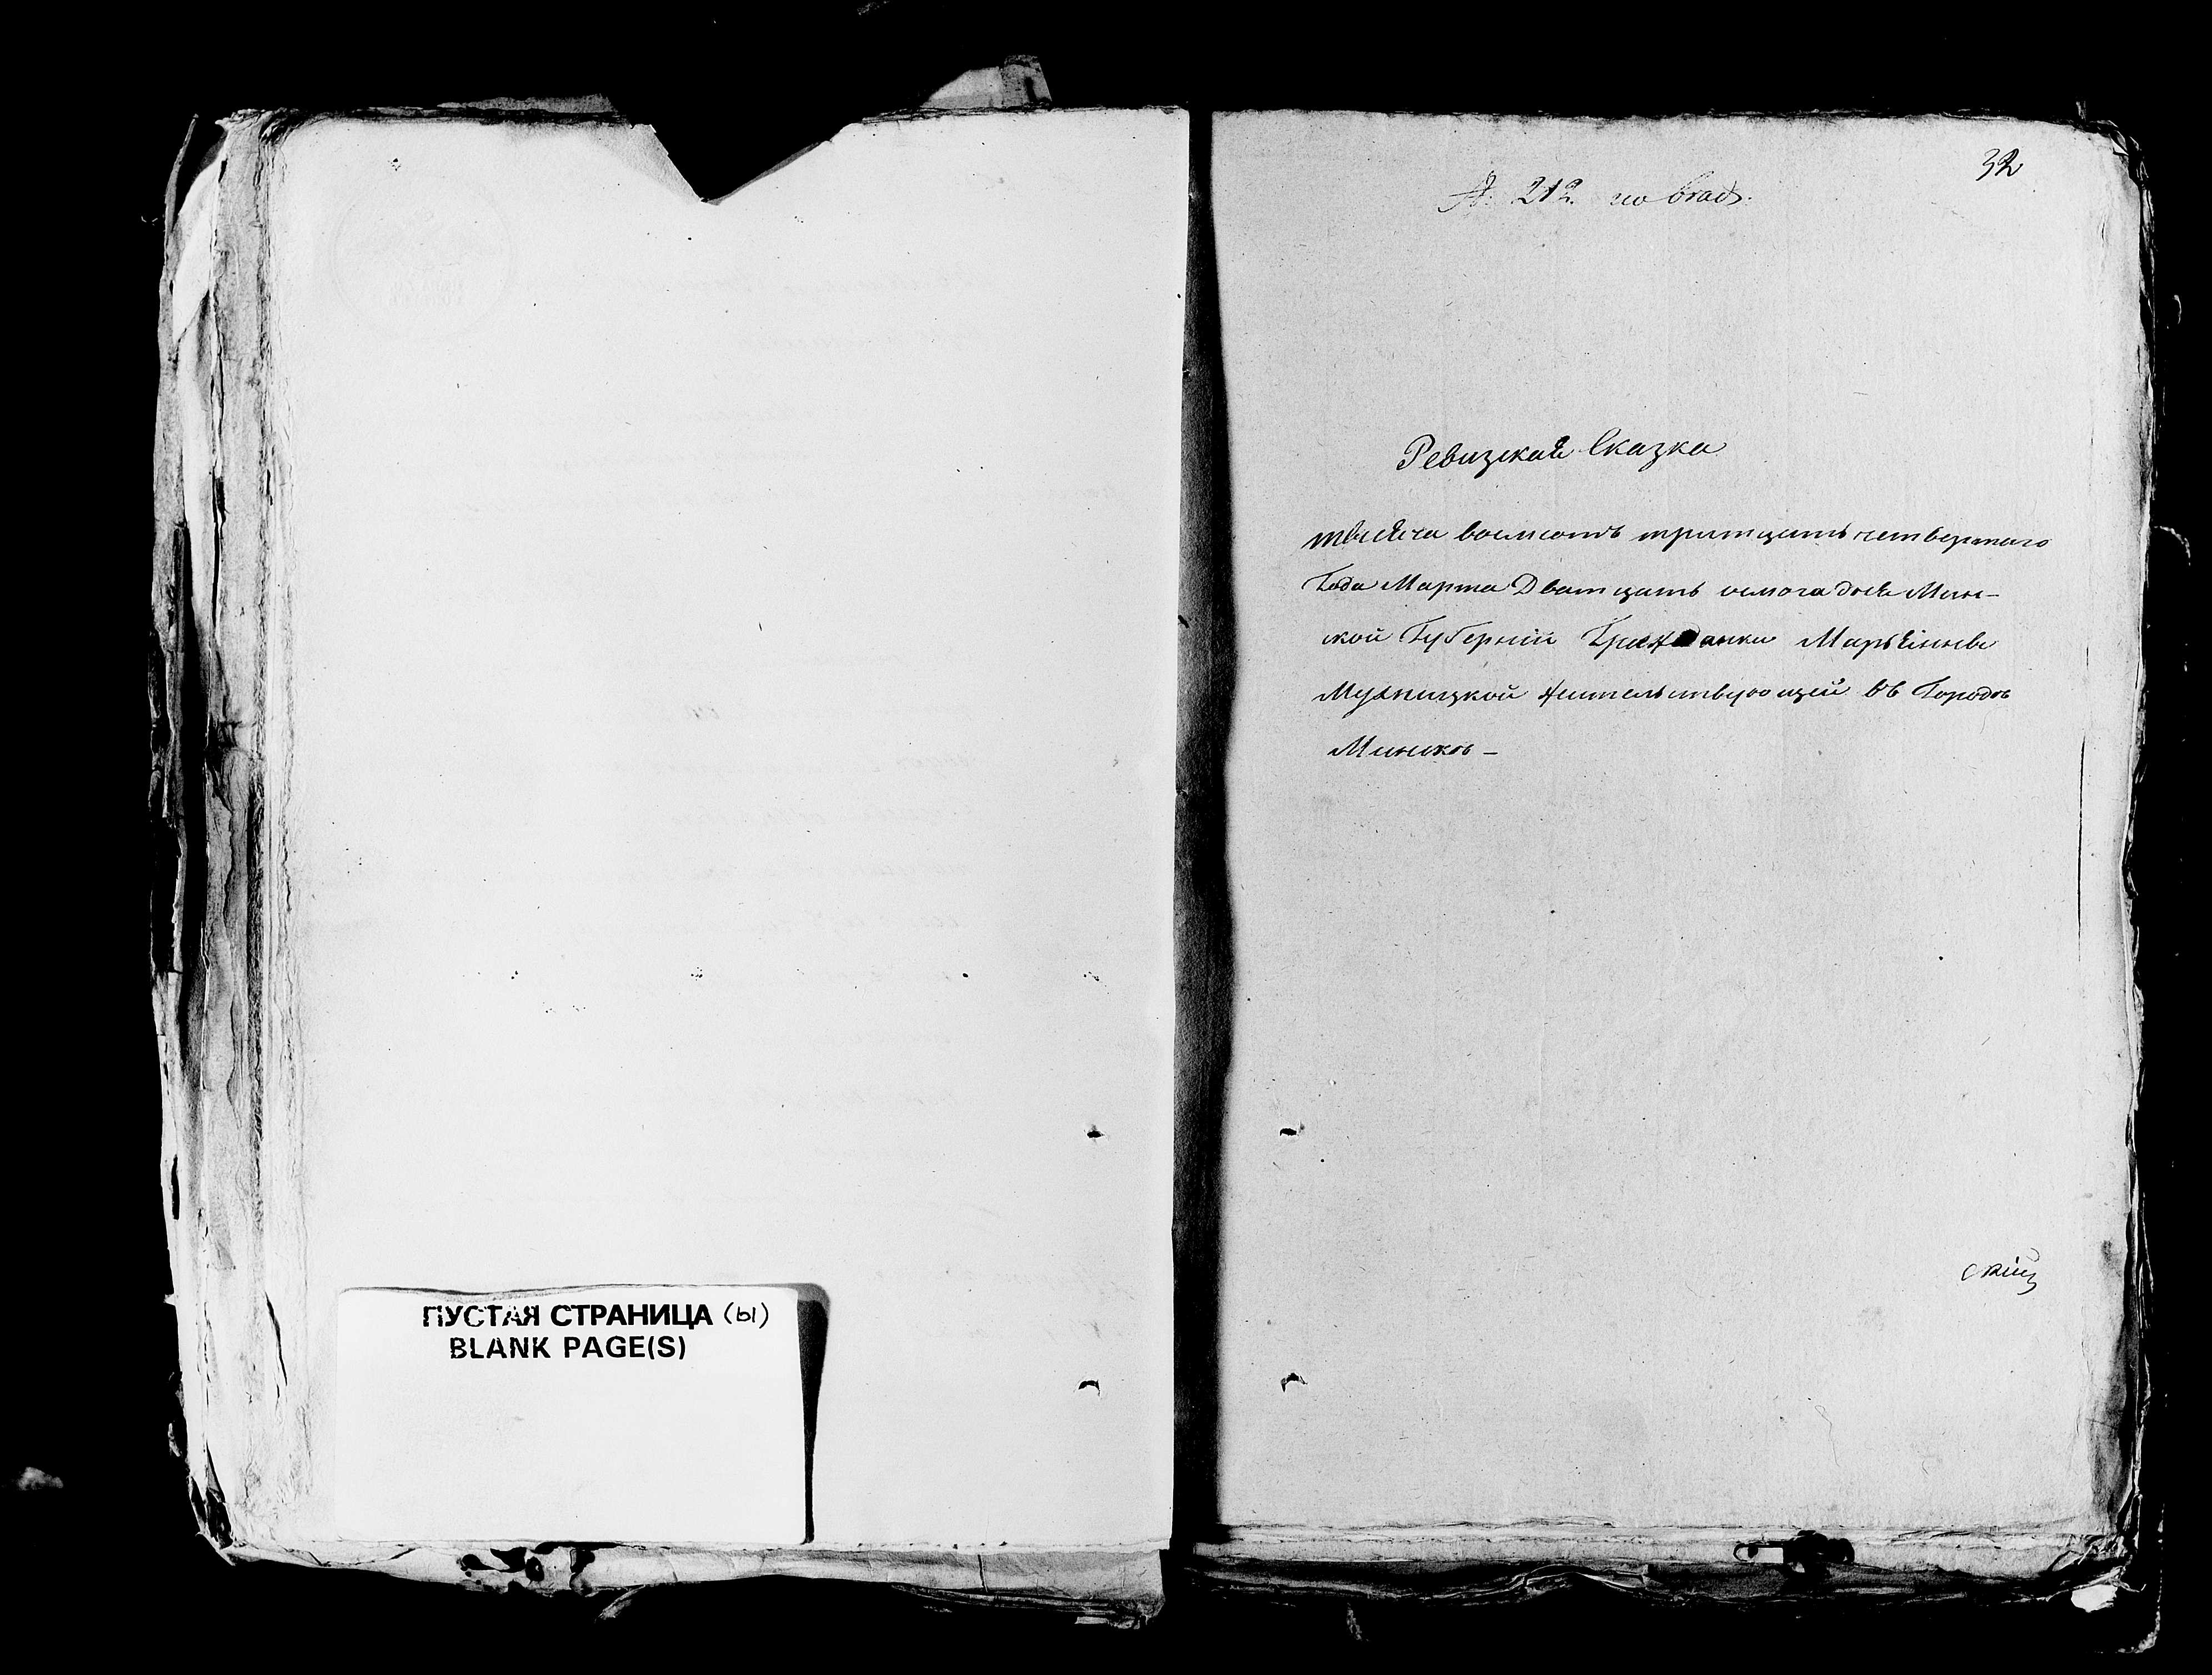 ПУСТАЯ СТРАНИЦА (ы)
BLANK PAGE(S)
32
212.
Ревизская Сказка
тысяча восмсотъ тритцать четвертаго
Года Марта Дватцать осмога дня Мин-
ской Губерніи Гражданки Марьянны
Мухницкой жительствующей въ Городѣ
Минскѣ –